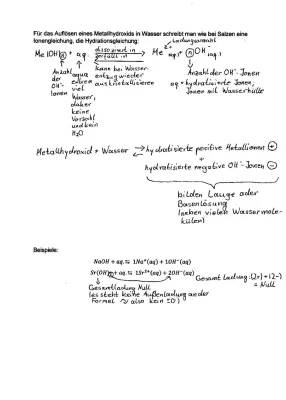 Für das Auflösen eines Metallhydroxids in Wasser schreibt man wie bei Salzen eine
Ionengleichung, die Hydrationsgleichung:
Ladungszahl
Me(OH)n + aq. dissoziiert in Me (aq.) + n OH (aq.)
zerfällt in
Anzahl der OH⁻ Ionen
aqua extrem viel Wasser, daher keine Vorzahl und kein H₂O
kann bei Wasserentzug wieder auskristallisieren
Anzahl der OH⁻-Ionen
aq = hydratisierte Ionen, Ionen mit Wasserhülle
Metallhydroxid + Wasser → hydratisierte positive Metallionen ⊕
+ hydratisierte negative OH⁻-Ionen ⊖
bilden Lauge oder
Basenlösung
(neben vielen Wassermole-
külen)
Beispiele:
NaOH + aq. ⇌ 1Na⁺(aq) + 1OH⁻(aq)
Sr(OH)₂ + aq. ⇌ 1Sr²⁺(aq) + 2OH⁻(aq)
Gesamt Ladung: (2+) + (2-)
= Null
Gesamtladung Null
(es steht keine Außenladung an der
Formel ≈ also kein ±0)